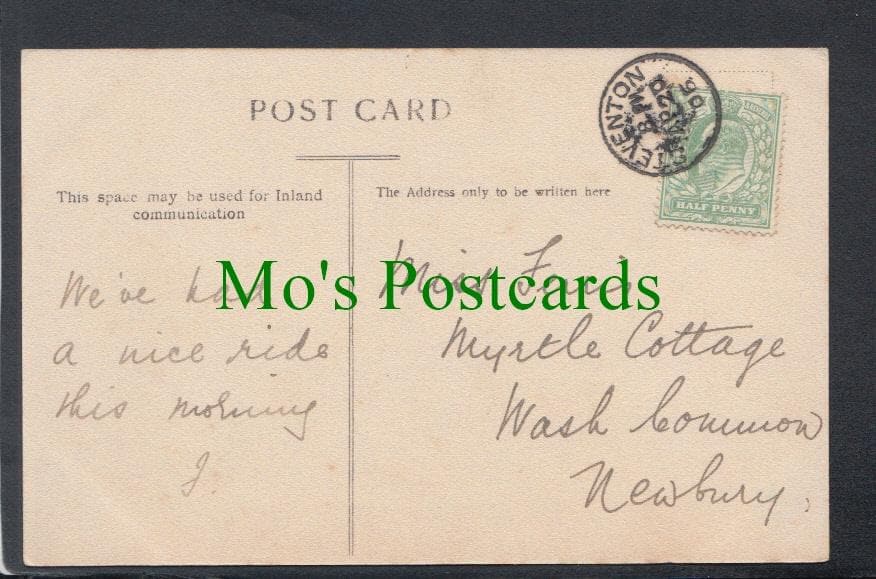 POST CARD
This space may be used for Inland
communication
The Address only to be written here
STEVENTON
HALF PENNY
We've had
a nice ride
this morning
J.
Mo's Postcards
Miss
Myrtle Cottage
Wash Common
Newbury.